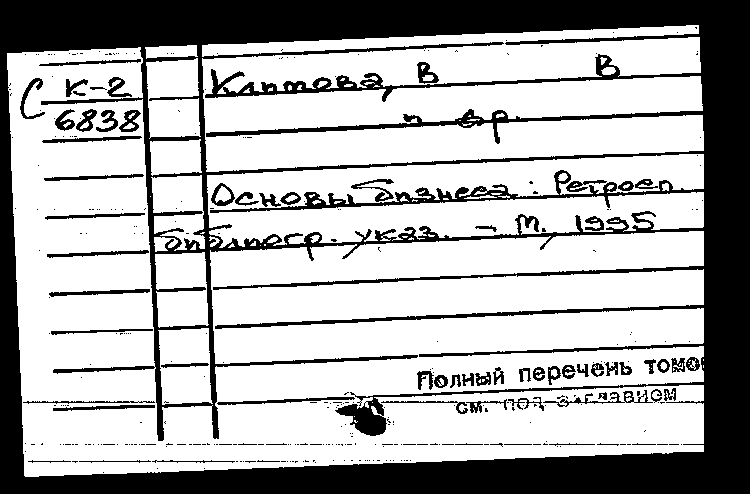 С К-2 Климова, В В
6838 и др.
Основы бизнеса : Ретросп.
библиогр. указ. – М., 1995
Полный перечень томо
см. под заглавием